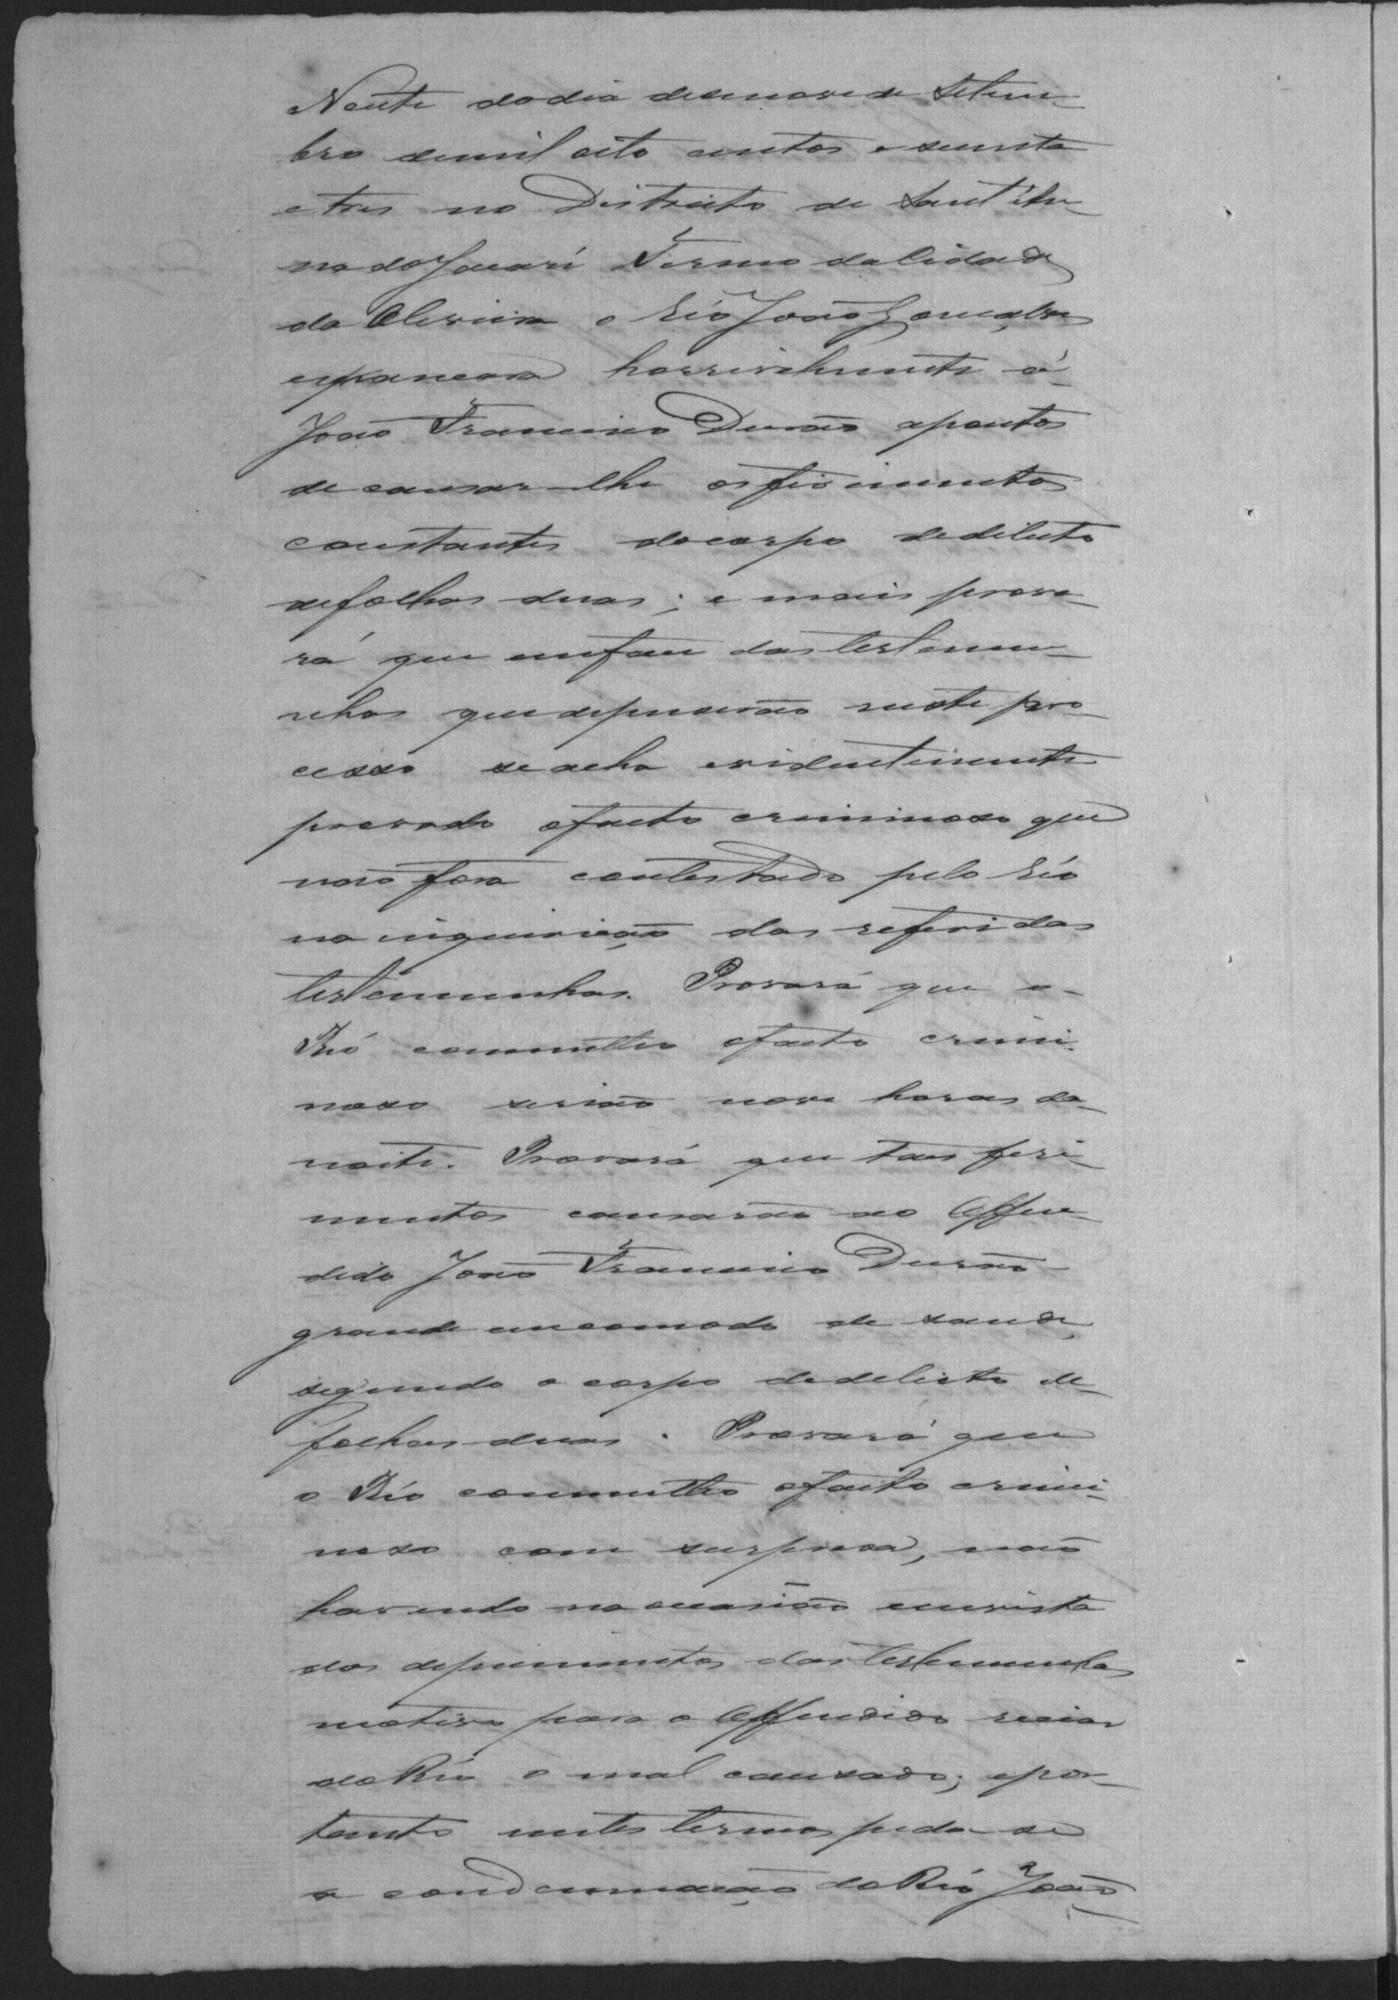 Noute do dia desenove de Setem-
bro demil oito centos e secenta
e tres no Districto de Sant'An-
na do Jacaré Termo da Cidade
da Oliveira o Réo João Gonçalves
espancara horrivelmente á
João Francisco Durão a ponto
de causar-lhe os ferimentos
constantes do corpo de delicto
de folhas duas; e mais prova-
rá que em face das testemu-
nhas que depuserão neste pro-
cesso se acha evidentemente
provado o facto criminoso que
não fora contestado pelo Réo
na inquirição das referidas
testemunhas. Provará que o
Réo commetteo o facto crimi-
noso serião nove horas da
noite. Provará que taes feri-
mentos causarão ao Offen-
dido João Francisco Durão
grande encomodo de saude,
segundo o corpo de delicto de
folhas duas. Provará que
o Réo commetteo o facto crimi-
noso com surpresa, não
havendo na occasião em vista
dos depoimentos das testemunhas
motivo para o Offendido receiar
do Réo o mal causado; e por-
tanto nestes termos pede-se
a condemnação do Réo João